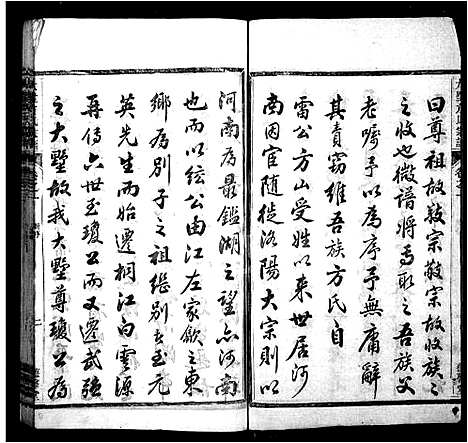 曰尊祖故敬宗敬宗故收族之
之收也微譜將焉取之吾族父
老囑予以為序予無庸辭
其責竊維吾族方氏自
雷公方山受姓以来世居河
南因官随徙洛陽大宗則以
河南為最鑑湖之望亦河南
也而以纮公由江左家歙之東
鄉為別子之祖繼別者至元
英先生而始遷桐江白雲源
再傳六世至瓊公而又遷武強
之大墅故我大墅尊瓊公為